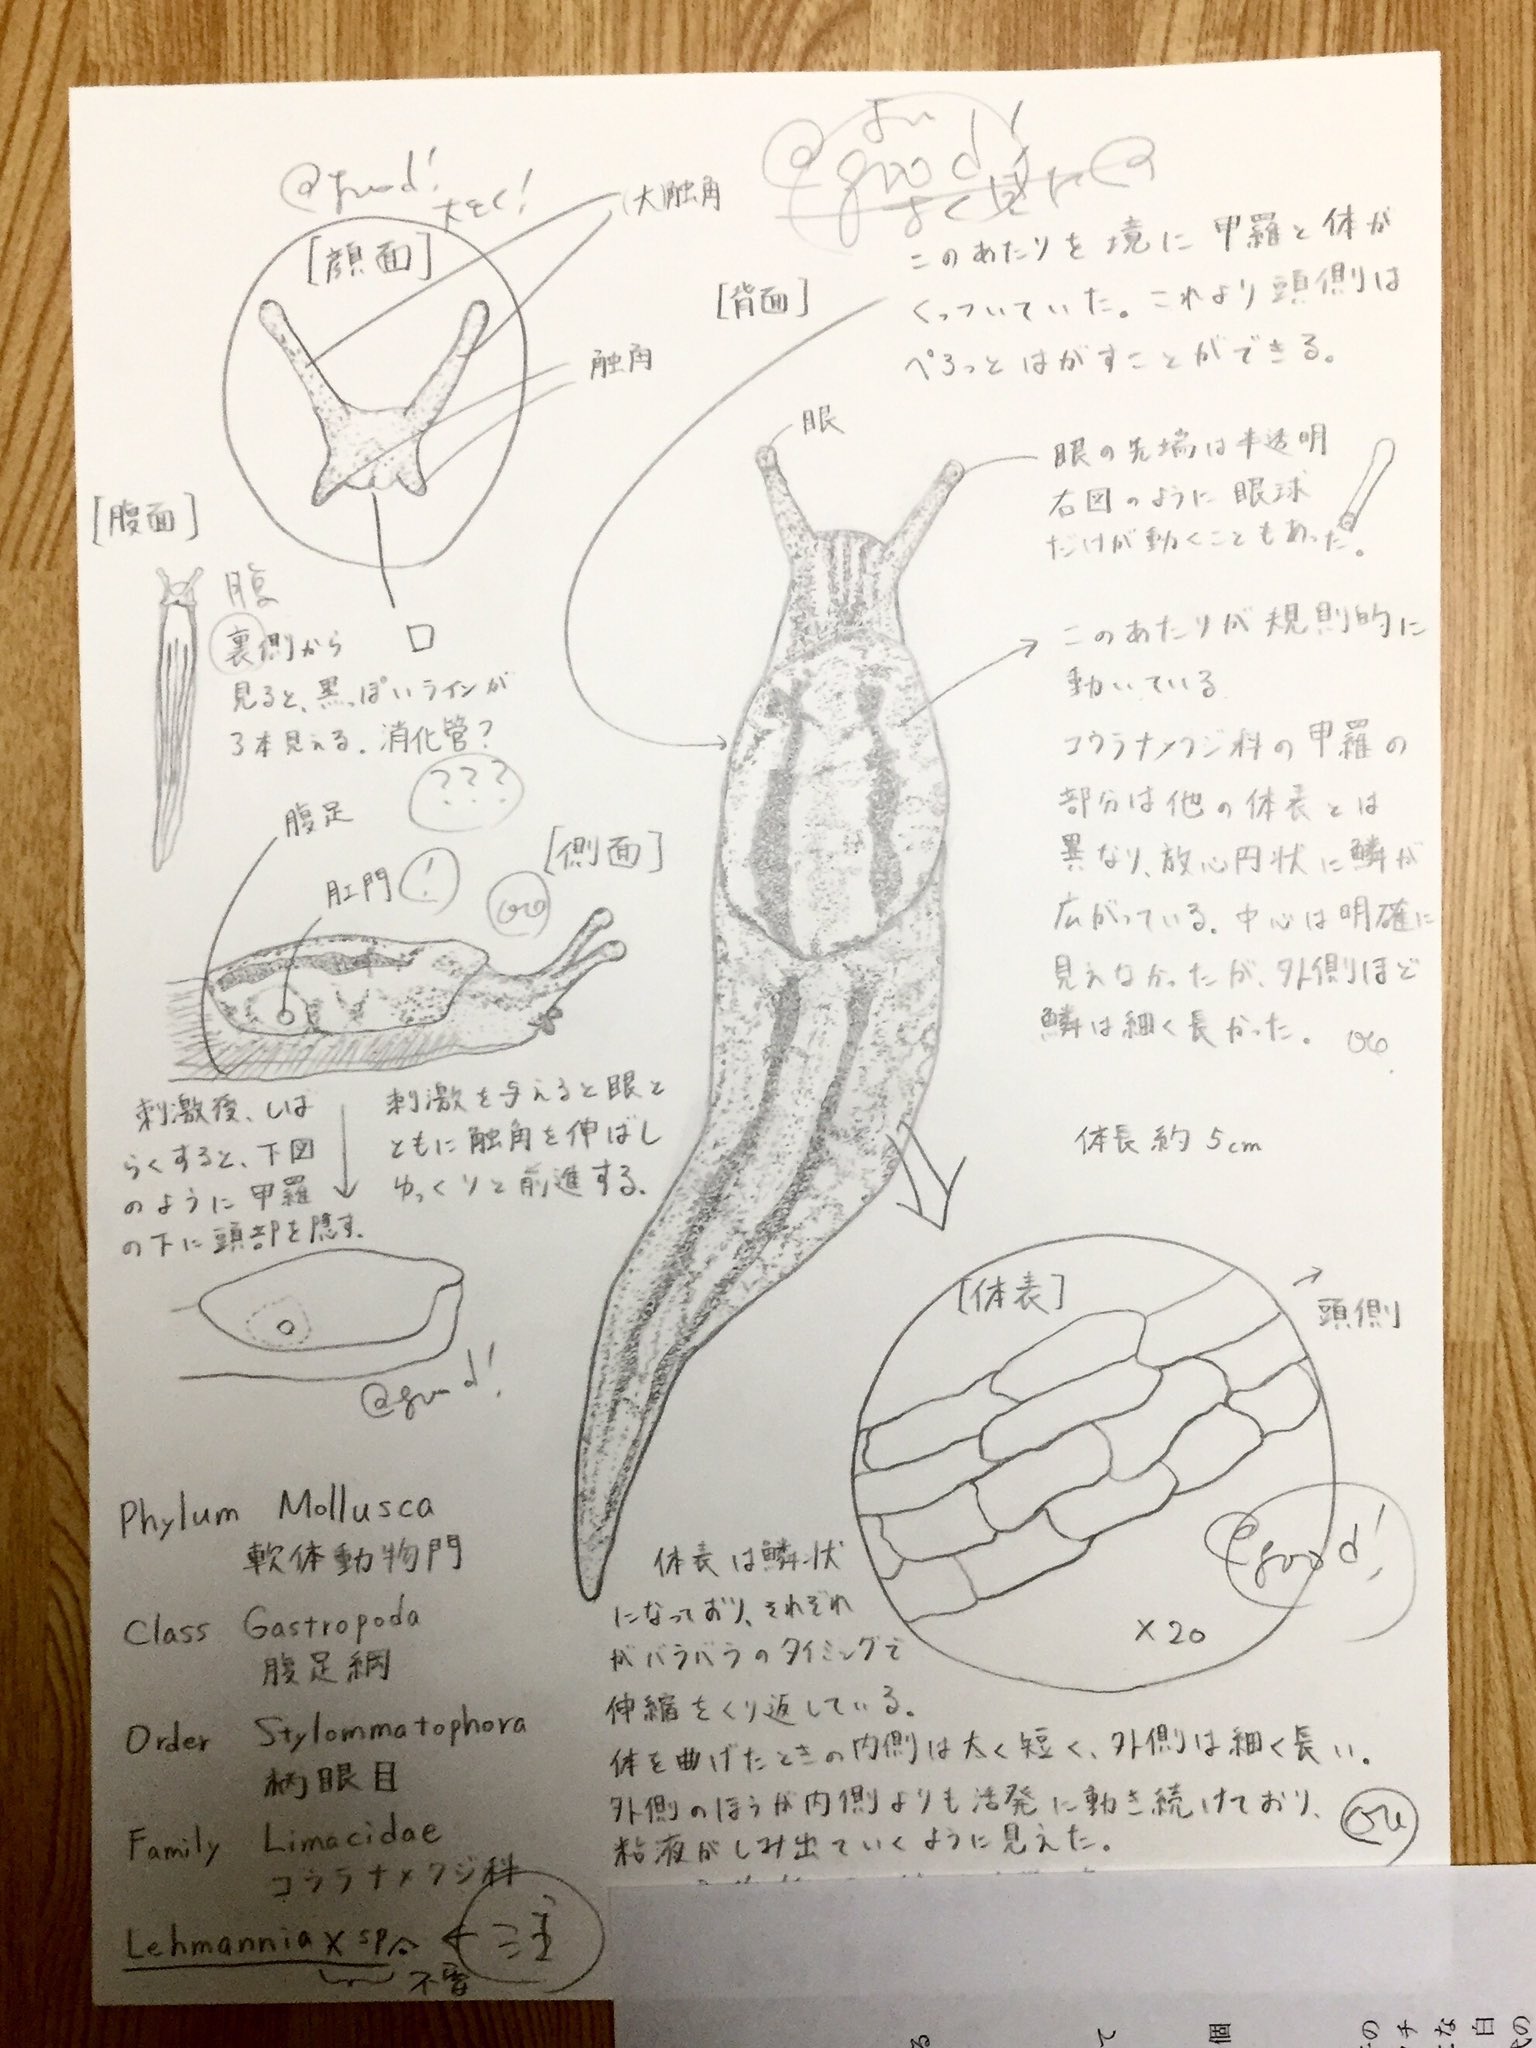 @good!
大きく!
[顔面]
(大)触角
触角
口
よい
@good!
よく見た@
[背面]
このあたりを境に甲羅と体が
くっついていた。これより頭側は
ぺろっとはがすことができる。
眼
眼の先端は半透明
右図のように眼球
だけが動くこともあった。
このあたりが規則的に
動いている
コウラナメクジ科の甲羅の
部分は他の体表とは
異なり、放心円状に鱗が
広がっている。中心は明確に
見えなかったが、外側ほど
鱗は細く長かった。
体長約5cm
[腹面]
腹
裏側から
見ると、黒っぽいラインが
3本見える。消化管?
???
腹足
肛門
!
[側面]
刺激を与えると眼と
ともに触角を伸ばし
ゆっくりと前進する。
刺激後、しば
らくすると、下図
のように甲羅
の下に頭部を隠す。
@good!
[体表]
頭側
@good!
×20
体表は鱗状
になっており、それぞれ
がバラバラのタイミングで
伸縮をくり返している。
体を曲げたときの内側は太く短く、外側は細く長い。
外側のほうが内側よりも活発に動き続けており、
粘液がしみ出ていくように見えた。
Phylum Mollusca
軟体動物門
Class Gastropoda
腹足綱
Order Stylommatophora
柄眼目
Family Limacidae
コウラナメクジ科
Lehmannia × sp.
注
不要
る
て
個